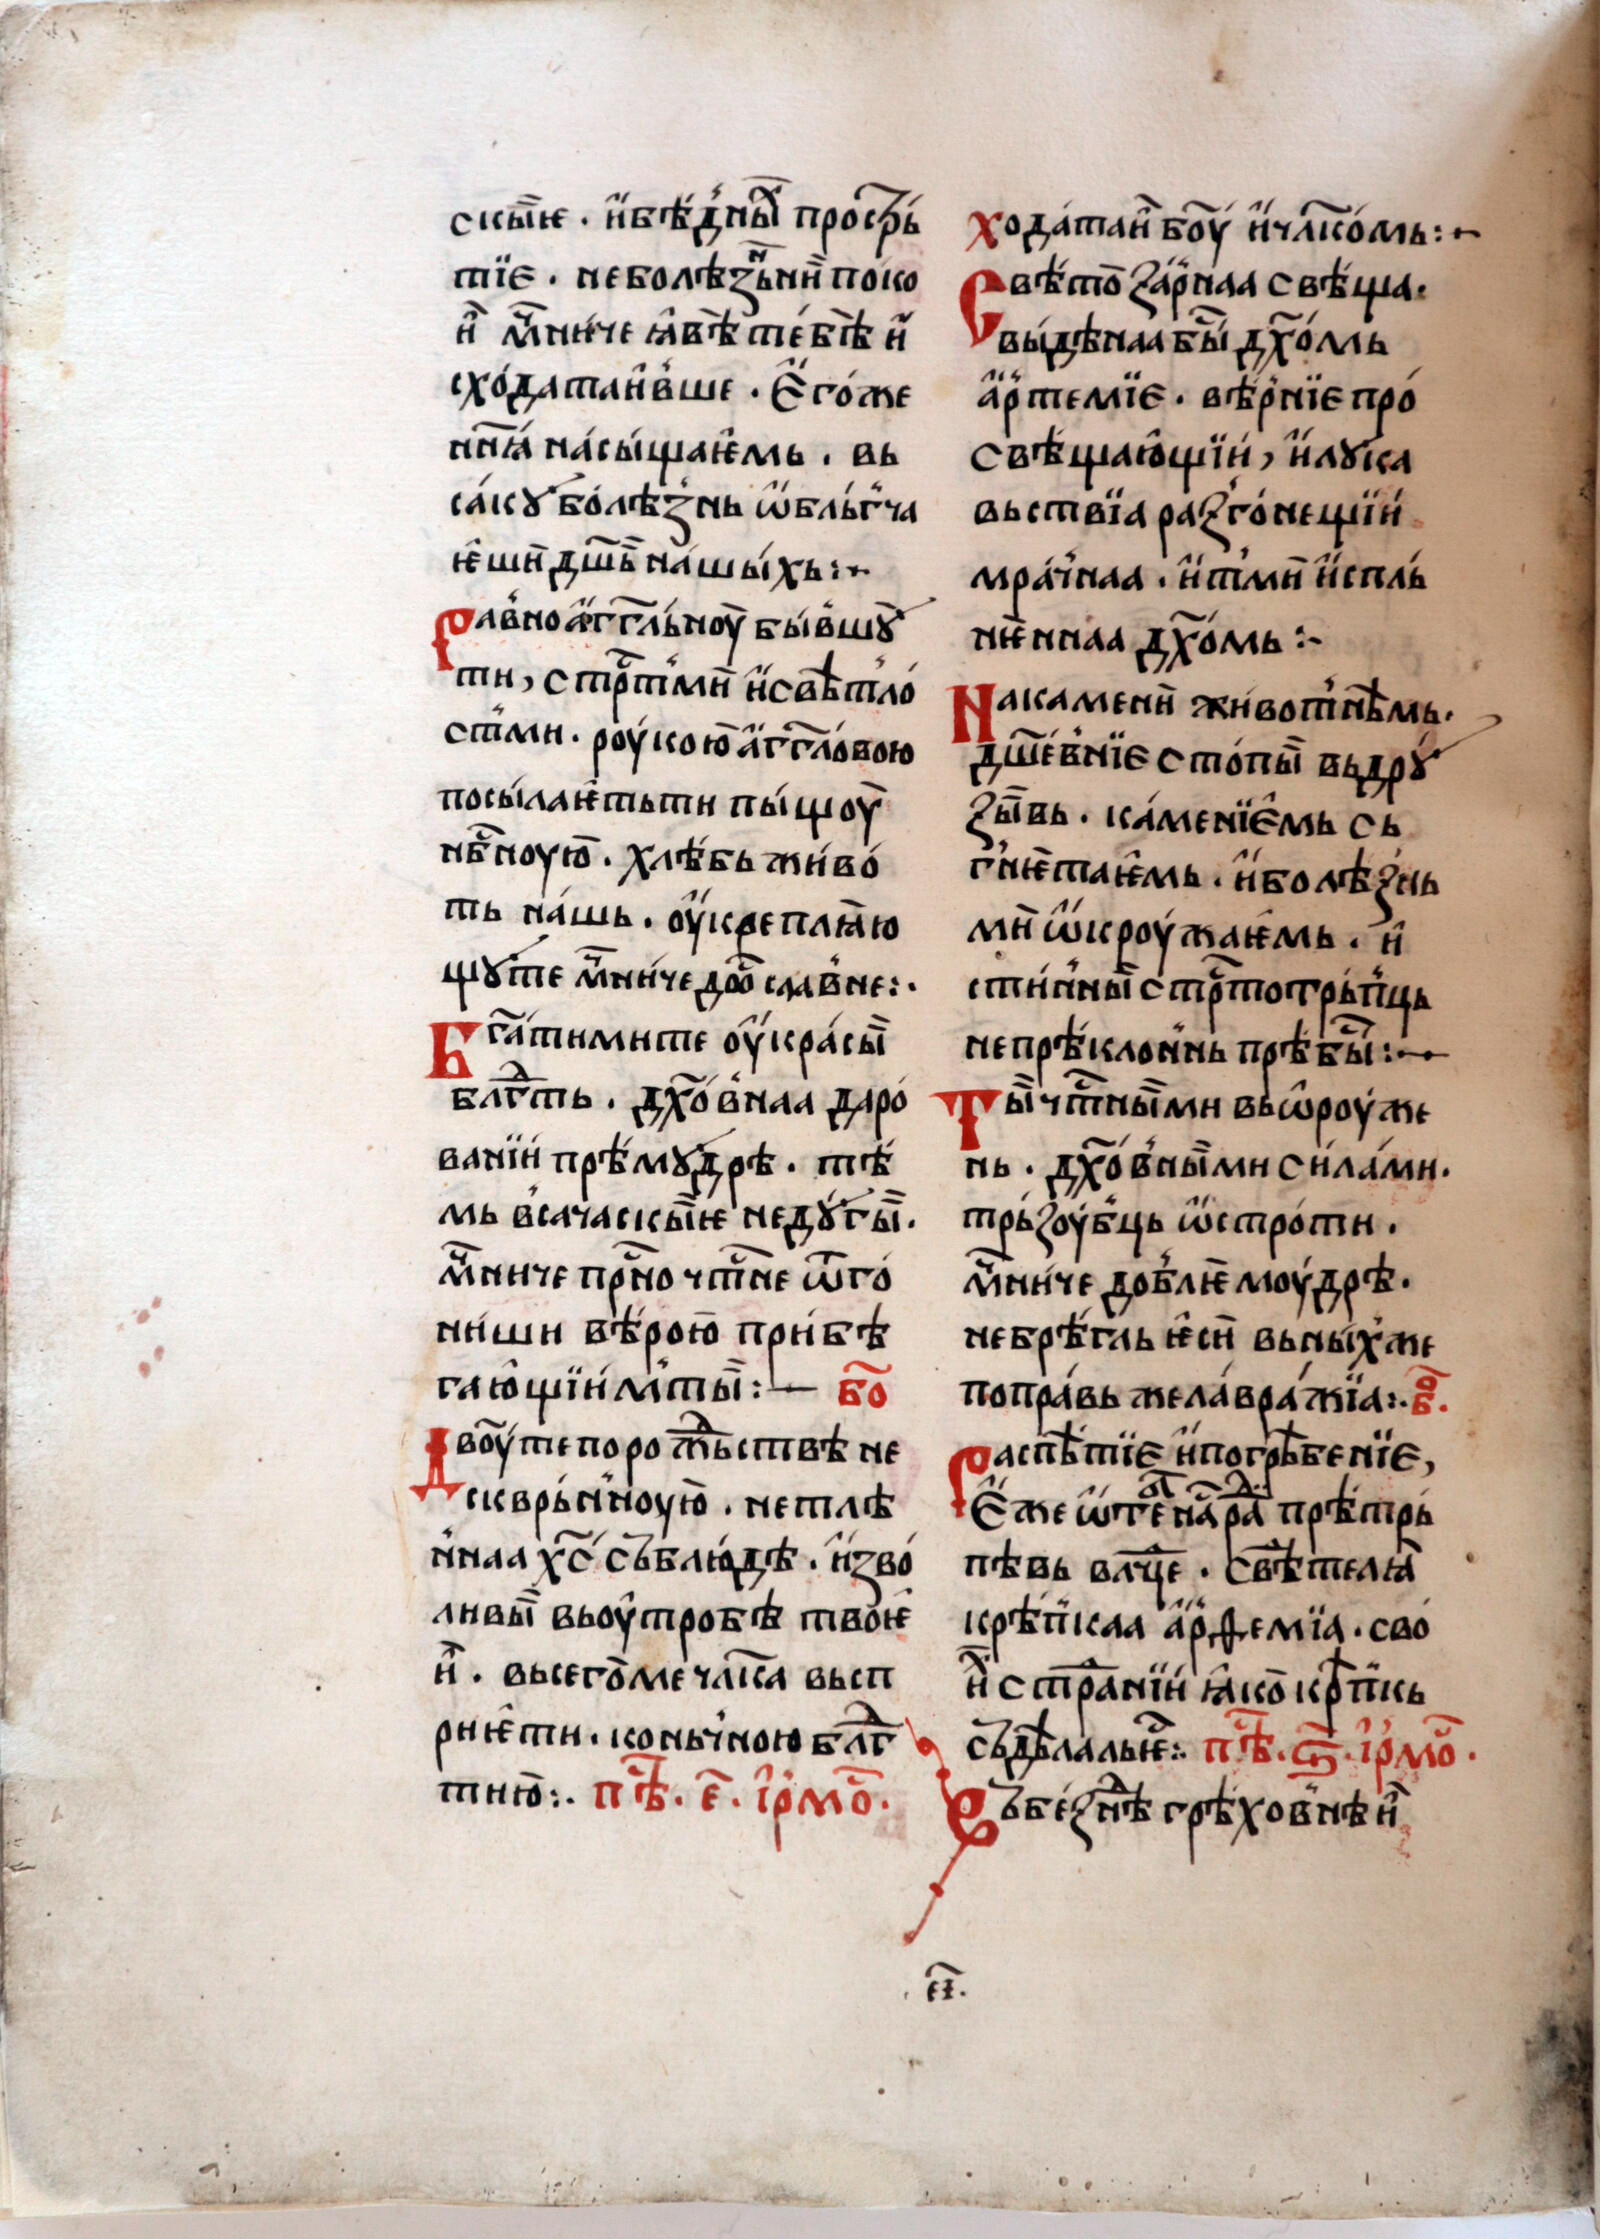 скы̏ѥ . и҆бѣ́дны̏хь прострь́
тїє . неболѣзньни̏ поко
и̏ м҃нниче ꙗ҆вѣ тебѣ́ и̏
схо́датаи҆вше . Є҆го́же
нн҃ꙗ на́сыщаѥ҆мь . вь
са́кꙋ бо́лѣзнь ѡ҆бль́гча
ѥ҆ши̏ дш҃ь на́шы́хь :~
Равно а҆гг҃ль́ноу̏ бы́вшꙋ
ти , стрⷭ҇тьми̏ и҆свѣтло́
стми . роу́кою̏ а҆гг҃ло́вою
посы́лаѥ҆тьти пы́щоу̏
нбⷭ҇ноую̏ . хлѣ́бь живо́
ть на́шь . оу҆крѣплꙗ҆ю
щꙋ́те м҃нни́че доⷭ҇ославне :.
Бг҃а́тимите оу҆кра́сы̏
блг҃ть . дх҃о́внаа даро́
ванїи́ прѣ́мꙋдрѣ . тѣ́
мь всачаскы̏ѥ недꙋ́гы̏ .
м҃нниче прⷭ҇но чтⷭ҇не ѿго́
ниши вѣ́рою̏ при́бѣ
гаю҆щїи́ мⷧ҇ты̏ :— бо҃
Двоу҃те поро жⷣьствѣ не
скврь́нною̏ . нетлѣ
ннаа х҃с съблю́дѣ . и҆зво́
ливы̏ вьоу҆тробѣ твоѥ҆
и̏ . высего̏ме чл҃ка высп
рѥ҆ти . коньчною блг҃
тию̏ :. пѣⷭ҇ . є҃ . і҆рмоⷭ҇ .
хода́таи̏ боу҃ и҆чл҃ко́мь :~
Свѣто̏ за́рнаа свѣща .
вы́дѣнаа бы̏ дх҃о́мь
а҆ртемїє . вѣ́рнїє про́
свѣщаю҆щїи́ , и҆лꙋка
вьствїа разго́нещїи́
мра́чнаа . и҆тьми̏ и҆спль́
нѥ҆ннаа дх҃о́мь :~
Накамени̏ живо́тнѣмь .
дш҃е́внїє сто́пы̏ вьдрꙋ́
зы̏вь . ка́менїє҆мь сь
гнѥ҆таѥ҆мь . и҆болѣ́знь
ми̏ ѡ҆кроу́жаѥ҆мь . и҆
сти́нны̏ стрⷭ҇тотрь́пць
непрѣ́клоннь прѣ́бы̏ :~
Ты̏ чтⷭ҇ны̏ми вьѡ҆роу́же
нь . дх҃о́вны̏ми си́лами .
трьзоу́бць ѡ҆стро́ти .
м҃нни́че до́блѥ моу́дрѣ .
небрѣ́гль ѥ҆си̏ вьны́хже
попра́вь жела́вра́жїа :. бо҃ .
Распѣ́тїє и҆погрѣ́бенїє ,
Є҆же ѿте на́ⷬ҇ра̏ прѣтрь́
пѣвь влⷣце . свѣ́телꙗ̏
крѣ́пкаа а҆рѳемїа . сво́
и̏ стра̏нїи́ ꙗ҆ко̏ крѣ́пкь
съдѣ́лальѥ :. пѣⷭ҇ . ѕ҃ . і҆рмоⷭ҇ .
Въбе́знѣ грѣховнѣи̏
є҃і .